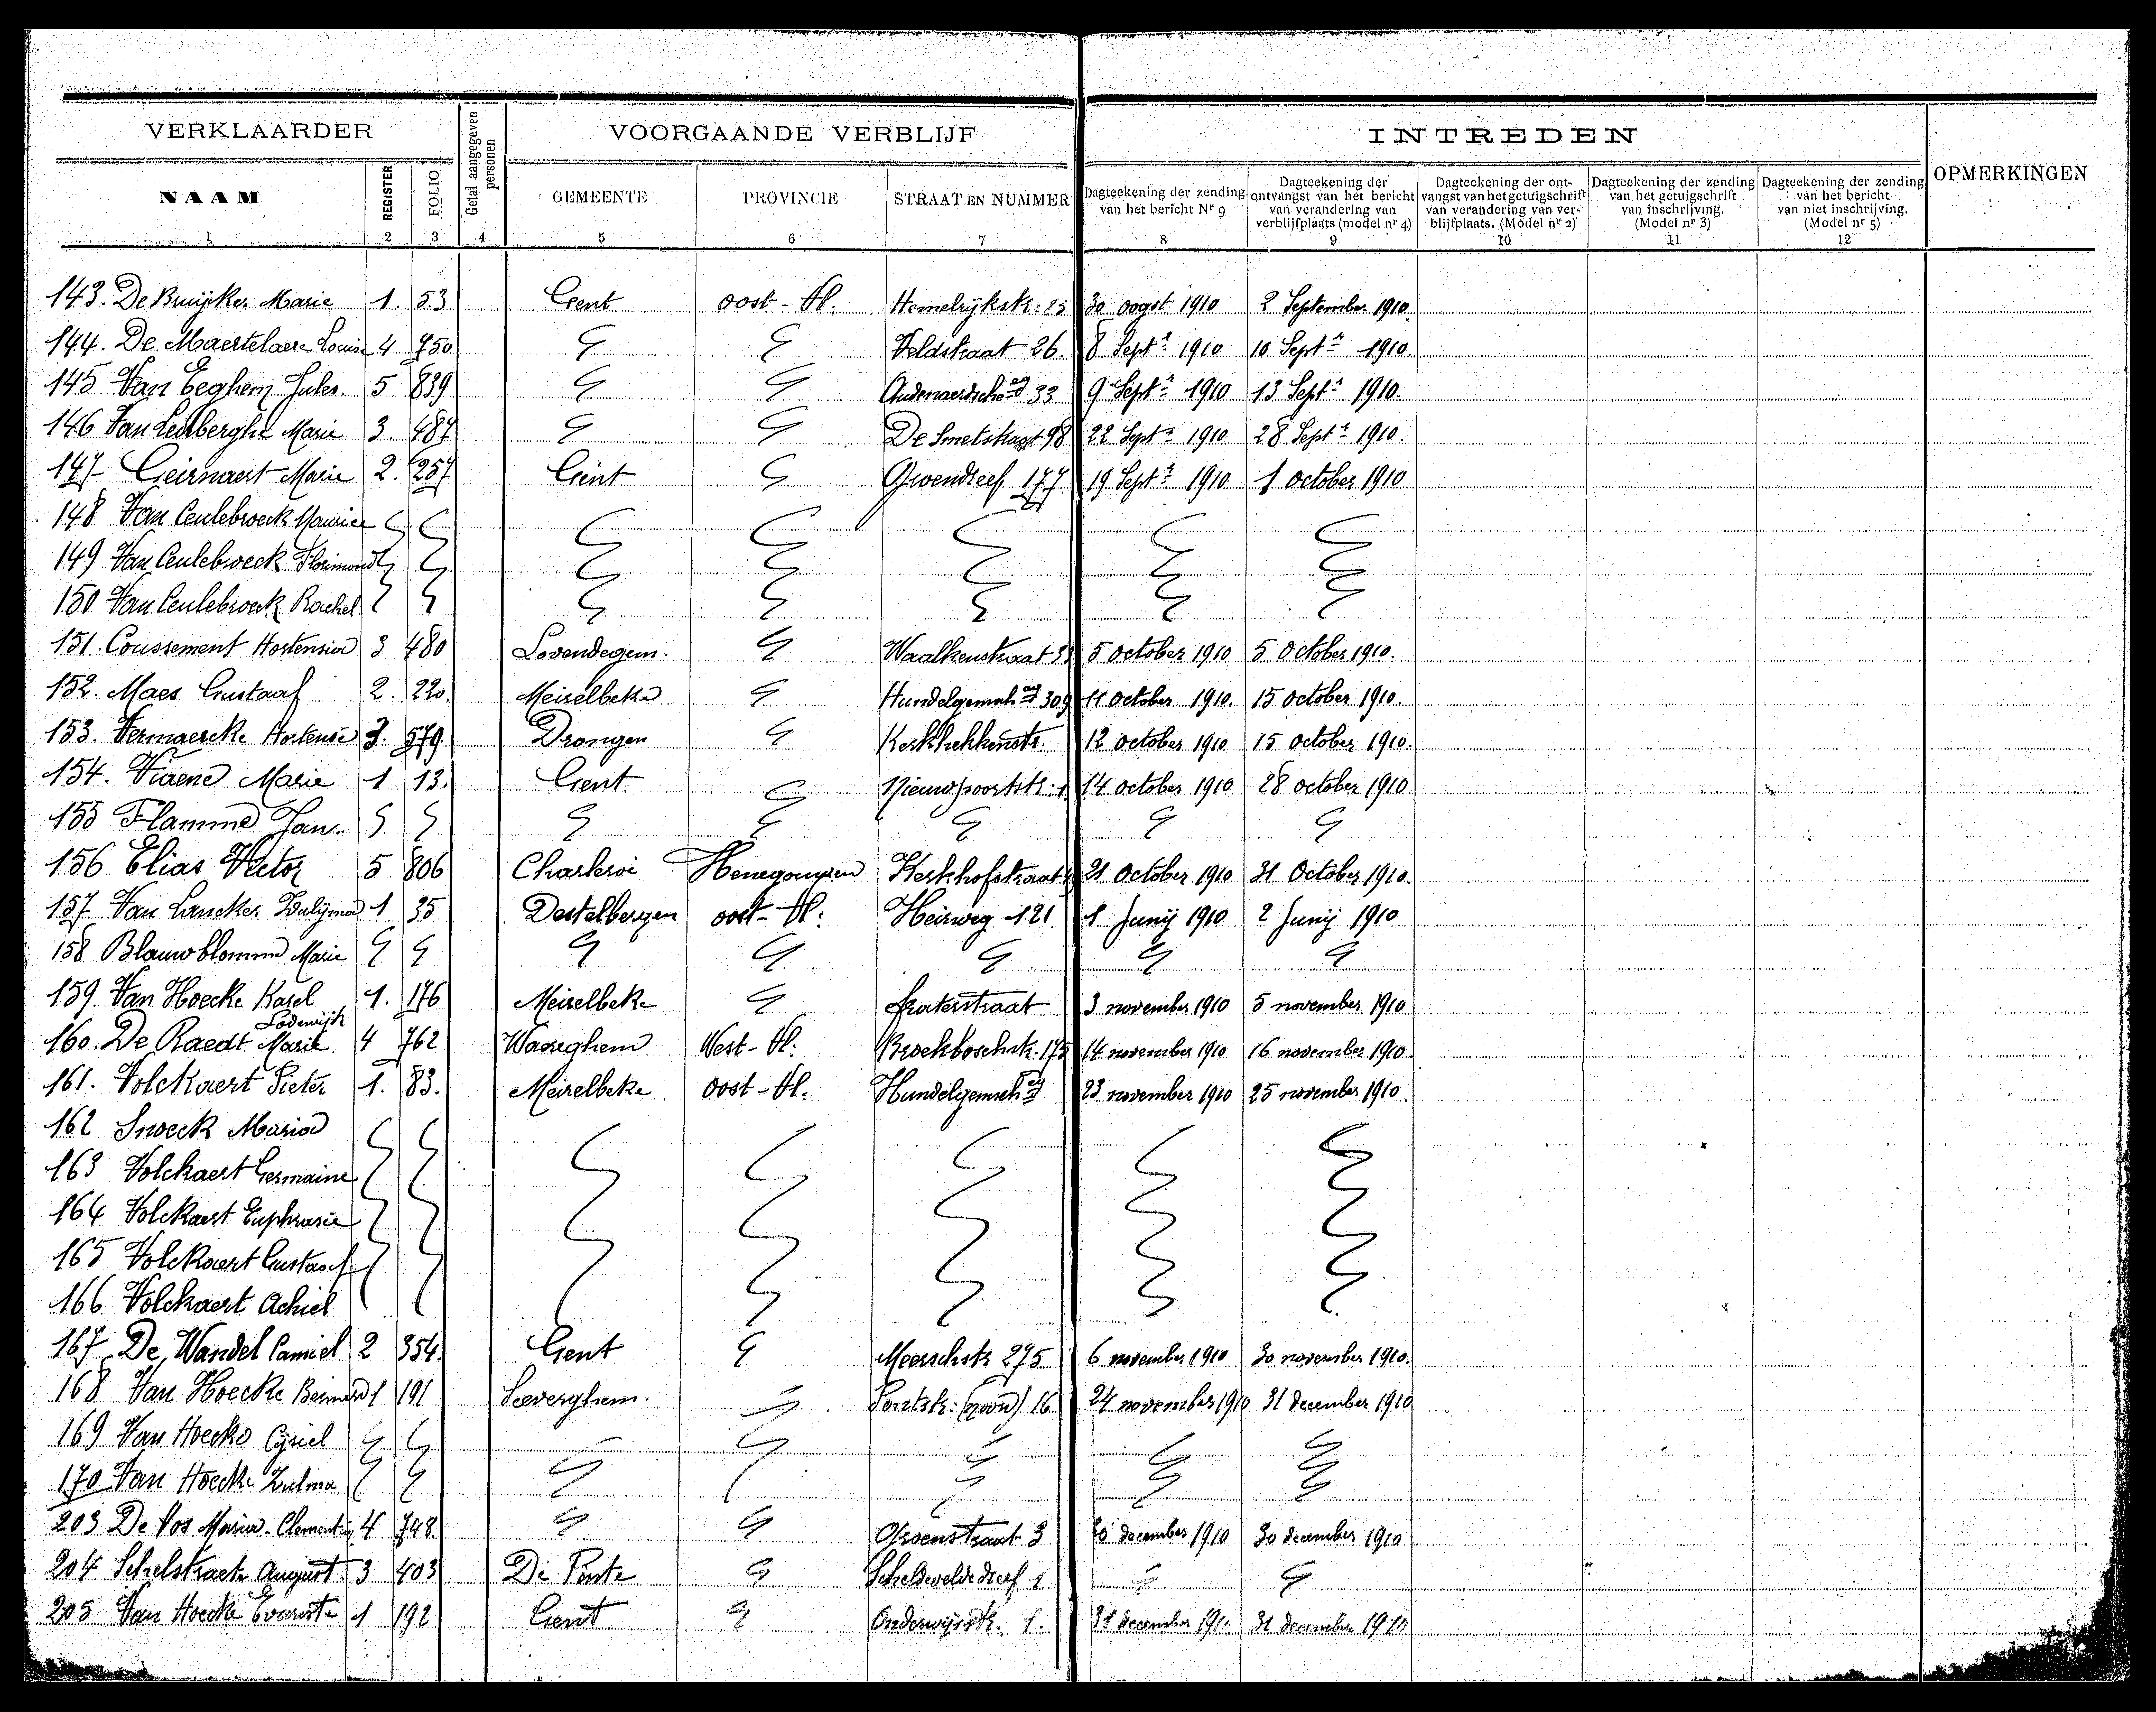 VERKLAARDER Getal aangegeven personen VOORGAANDE VERBLIJF INTREDEN OPMERKINGEN
NAAM REGISTER FOLIO GEMEENTE PROVINCIE STRAAT EN NUMMER
Dagteekening der zending van het bericht Nr 9
Dagteekening der ontvangst van het bericht van verandering van verblijfplaats (model nr 4)
Dagteekening der ontvangst van het getuigschrift van verandering van verblijfplaats. (Model nr 2)
Dagteekening der zending van het getuigschrift van inschrijving. (Model nr 3)
Dagteekening der zending van het bericht van niet inschrijving. (Model nr 5)
1 2 3 4 5 6 7 8 9 10 11 12
143. De Bruijker Marie 1. 53 Gent oost-Vl. Hemelrijkstr: 25 30 oogst 1910 2 September 1910.
144. De Maertelaere Louise 4 750 Veldstraat 26. 8 Septr 1910 10 Septr 1910.
145 Van Eeghem Jules. 5 839 33 9 Septr 1910 13 Septr 1910.
146 Van Lenberghe Marie 3. 487 De Smetstraat 98 22 Septr 1910 28 Septr 1910.
147 Geirnaert Marie 2. 257 Gent Groendreef 177 19 Septr 1910 1 October 1910
148 Van Ceulebroeck Maurice
149 Van Ceulebroeck Florimond
150 Van Ceulebroeck Rachel
151. Coussement Hortensia 3 480 Lovendegem. Waalkenstraat 5 October 1910 5 October 1910.
152. Maes Gustaaf 2. 220. Meirelbeke 309 11 October 1910. 15 October 1910.
153. Vermaercke Hortense 3. 579. Drongen 12 October 1910 15 October 1910.
154. Viaene Marie 1 13. Gent Nieuwpoortstr: 14 October 1910 28 october 1910
155 Flamme Jan.
156 Elias Victor 5 806 Charleroi Henegouwen Kerkhofstraat 21 October 1910 31 October 1910.
157 Van Lancker Zulijma 1 35 Destelbergen oost-Vl: Heirweg 121 1 Junij 1910 2 Junij 1910
158 Blauwblomme Marie
159. Van Hoecke Karel 1. 176 Meirelbeke fraterstraat 3 november 1910 5 november 1910
Lodewijk
160. De Raedt Marie 4 762 Waereghem West-Vl: Broekboschstr. 175 14 november 1910 16 november 1910.
161. Volckaert Pieter 1. 83. Meirelbeke oost-Vl. 23 november 1910 25 november 1910.
162 Snoeck Maria
163 Volckaert Germaine
164 Volckaert Euphrasie
165 Volckaert Gustaaf
166 Volckaert Achiel
167 De Wandel Camiel 2 354. Gent Meerschstr 275 6 november 1910 30 november 1910.
168 Van Hoecke Bernard 1 191 Seeverghem. 16 24 november 1910 31 december 1910
169 Van Hoecke Cijriel
170 Van Hoecke Zulma
203 De Vos Maria-Clementin 4 748. Groenstraat 3 december 1910 30 december 1910
204 Schelstraete August. 3 403 De Pinte Scheldeveldedreef 1
205 Van Hoecke Evariste 1 192 Gent Onderwijsstr. 1. 31 december 1910 31 december 1910